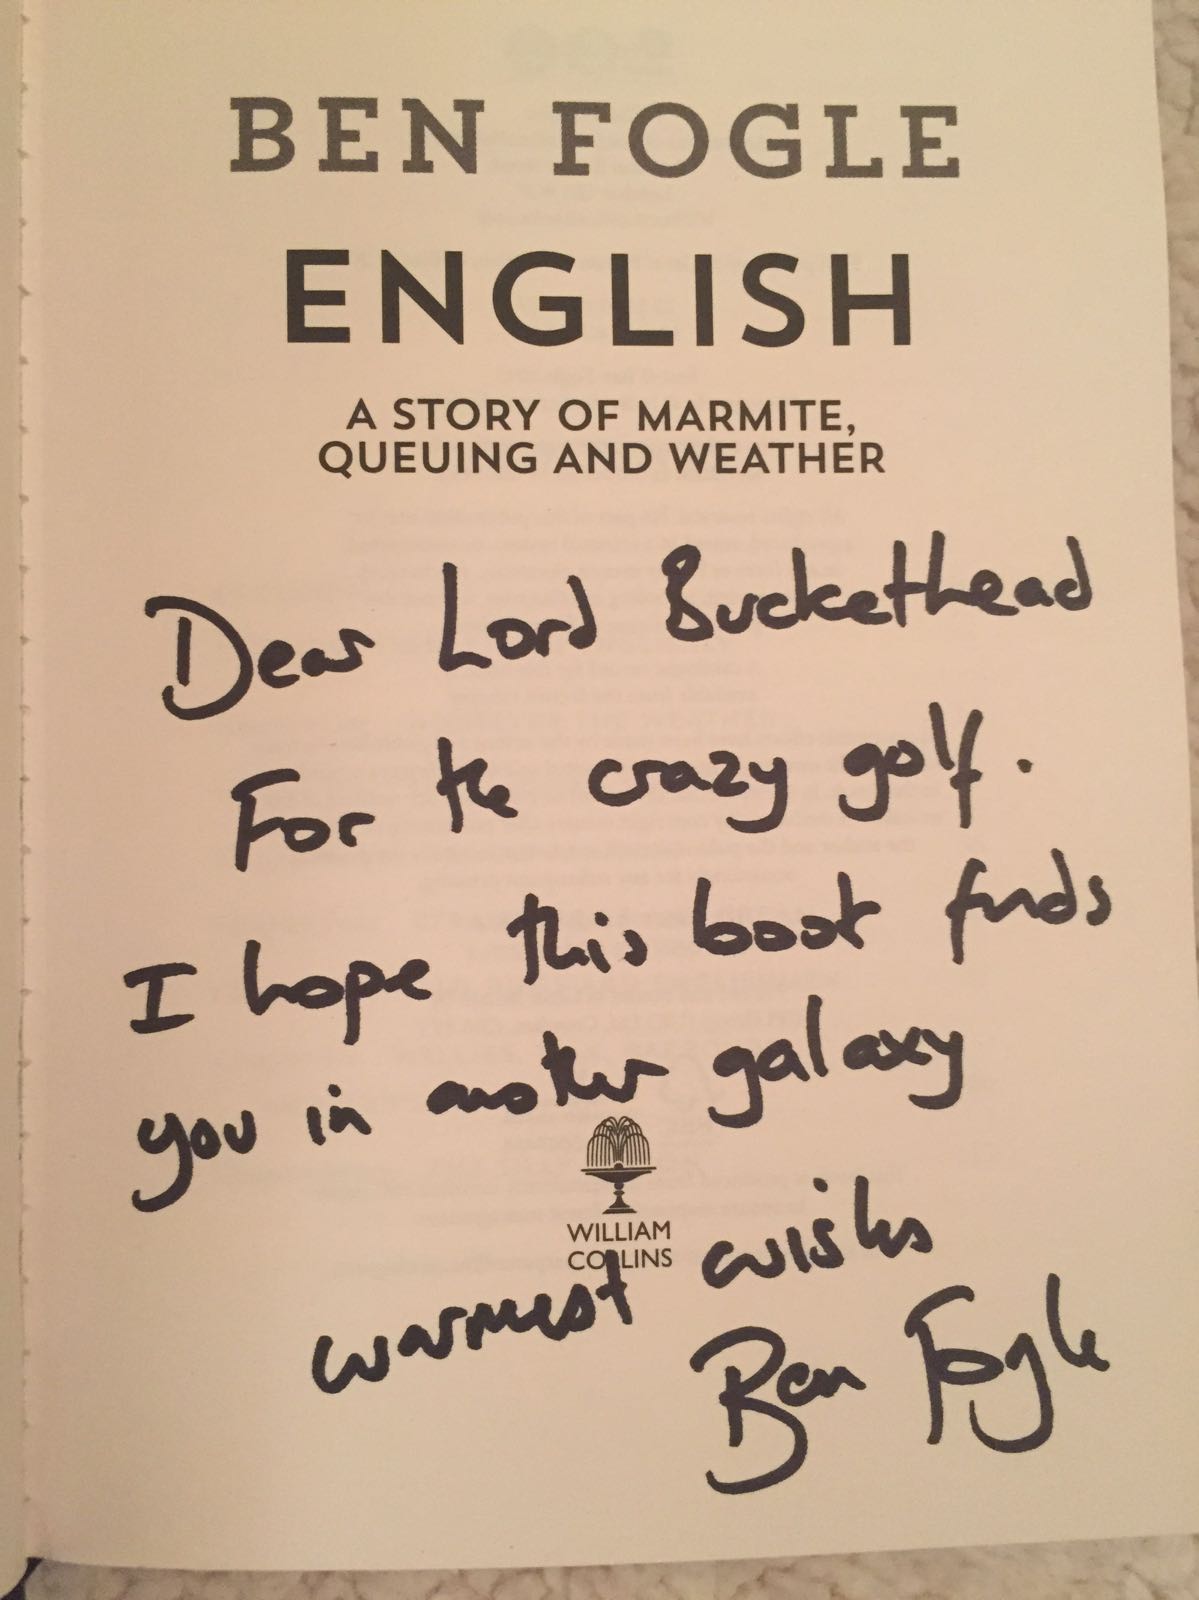 BEN FOGLE
ENGLISH
A STORY OF MARMITE,
QUEUING AND WEATHER
Dear Lord Buckethead
For the crazy golf.
I hope this book finds
you in another galaxy
WILLIAM
COLLINS
warmest wishes
Ben Fogle